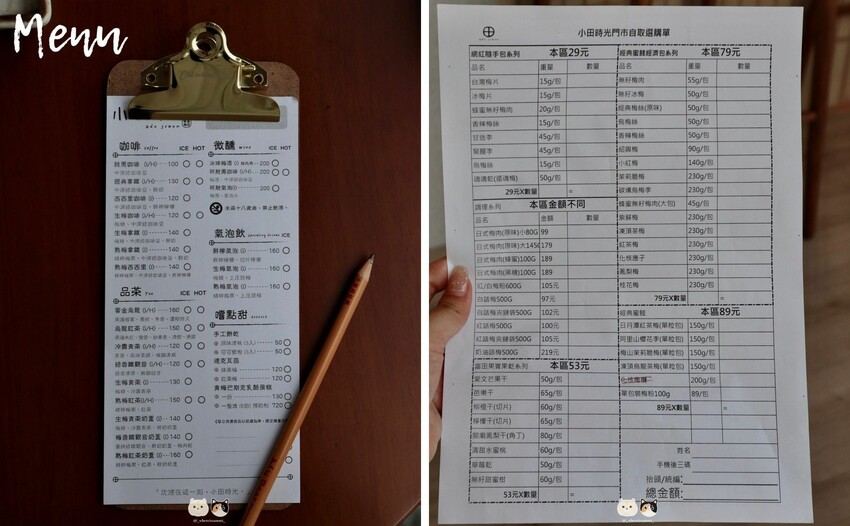 Menu
小
咖啡 coffee ICE HOT
經典拿鐵 (I/H) 130
西西里咖啡 (I) 120
生梅咖啡 (I/H) 120
生梅拿鐵 (I) 140
熟梅拿鐵 (I) 140
熟梅西西里 (I) 140
品茶 Tea ICE HOT
蜜金烏龍 (I/H) 160
烏龍紅茶 (I/H) 150
冷露青茶 (I/H) 120
生梅青茶 (I) 130
熟梅紅茶 (I/H) 150
生梅青茶奶蓋 (I) 140
梅香鐵觀音奶蓋 (I) 140
熟梅紅茶奶蓋 (I) 160
微醺 wine ICE HOT
冰釀梅酒 (I) 200
未滿十八歲者，禁止飲酒。
氣泡飲 sparkling drinks ICE
鮮檸氣泡 (I) 160
生梅氣泡 (I) 160
熟梅氣泡 (I) 160
嚐點甜 dessert
手工餅乾
原味曲奇 (5入) 50
可可曲奇 (5入) 50
達克瓦茲
抹茶梅 120
紅茶梅 120
青梅巴斯克乳酪蛋糕
一份 130
720
"沈浸在這一刻，小田時光。"
小田時光門市自取選購單
網紅隨手包系列 本區29元
品名 重量 數量
台灣梅片 15g/包
冰梅片 15g/包
蜂蜜無籽梅肉 20g/包
香辣梅絲 15g/包
甘甜李 45g/包
紫蘇李 45g/包
烏梅絲 15g/包
適適乾(還魂梅) 50g/包
29元X數量 =
調理系列 本區金額不同
品名 金額 數量
日式梅肉(原味)小80G 99
日式梅肉(原味)大145G 179
日式梅肉(蜂蜜)100G 189
日式梅肉(黑糖)100G 189
紅/白梅粉600G 105元
白話梅500G 97元
白話梅夾鏈袋500G 102元
紅話梅500G 100元
紅話梅夾鏈袋500G 105元
奶油話梅500G 219元
富田果寶果乾系列 本區53元
愛文芒果干 50g/包
芭樂干 65g/包
柳橙子(切片) 60g/包
檸檬子(切片) 65g/包
關廟鳳梨干(角丁) 80g/包
清甜水蜜桃 60g/包
草莓乾 50g/包
無籽甜蜜樹 60g/包
53元X數量 =
經典蜜餞經濟包系列 本區79元
品名 重量 數量
無籽梅肉 55g/包
無籽冰梅 50g/包
經典梅絲(原味) 50g/包
烏梅絲 50g/包
香辣梅絲 50g/包
紹興梅 90g/包
小紅梅 140g/包
茉莉脆梅 230g/包
碳燻烏梅李 230g/包
蜂蜜無籽梅肉(大包) 45g/包
紫蘇梅 230g/包
凍頂茶梅 230g/包
紅茶梅 230g/包
化核應子 230g/包
鳳梨梅 230g/包
桂花梅 230g/包
79元X數量 =
經典蜜餞 本區89元
日月潭紅茶梅(單粒包) 150g/包
阿里山櫻花李(單粒包) 150g/包
梅山茉莉脆梅(單粒包) 150g/包
凍頂烏龍茶梅(單粒包) 150g/包
200g/包
單包裝梅粉100g 89/包
89元X數量 =
姓名
手機後三碼
抬頭/統編:
總金額: